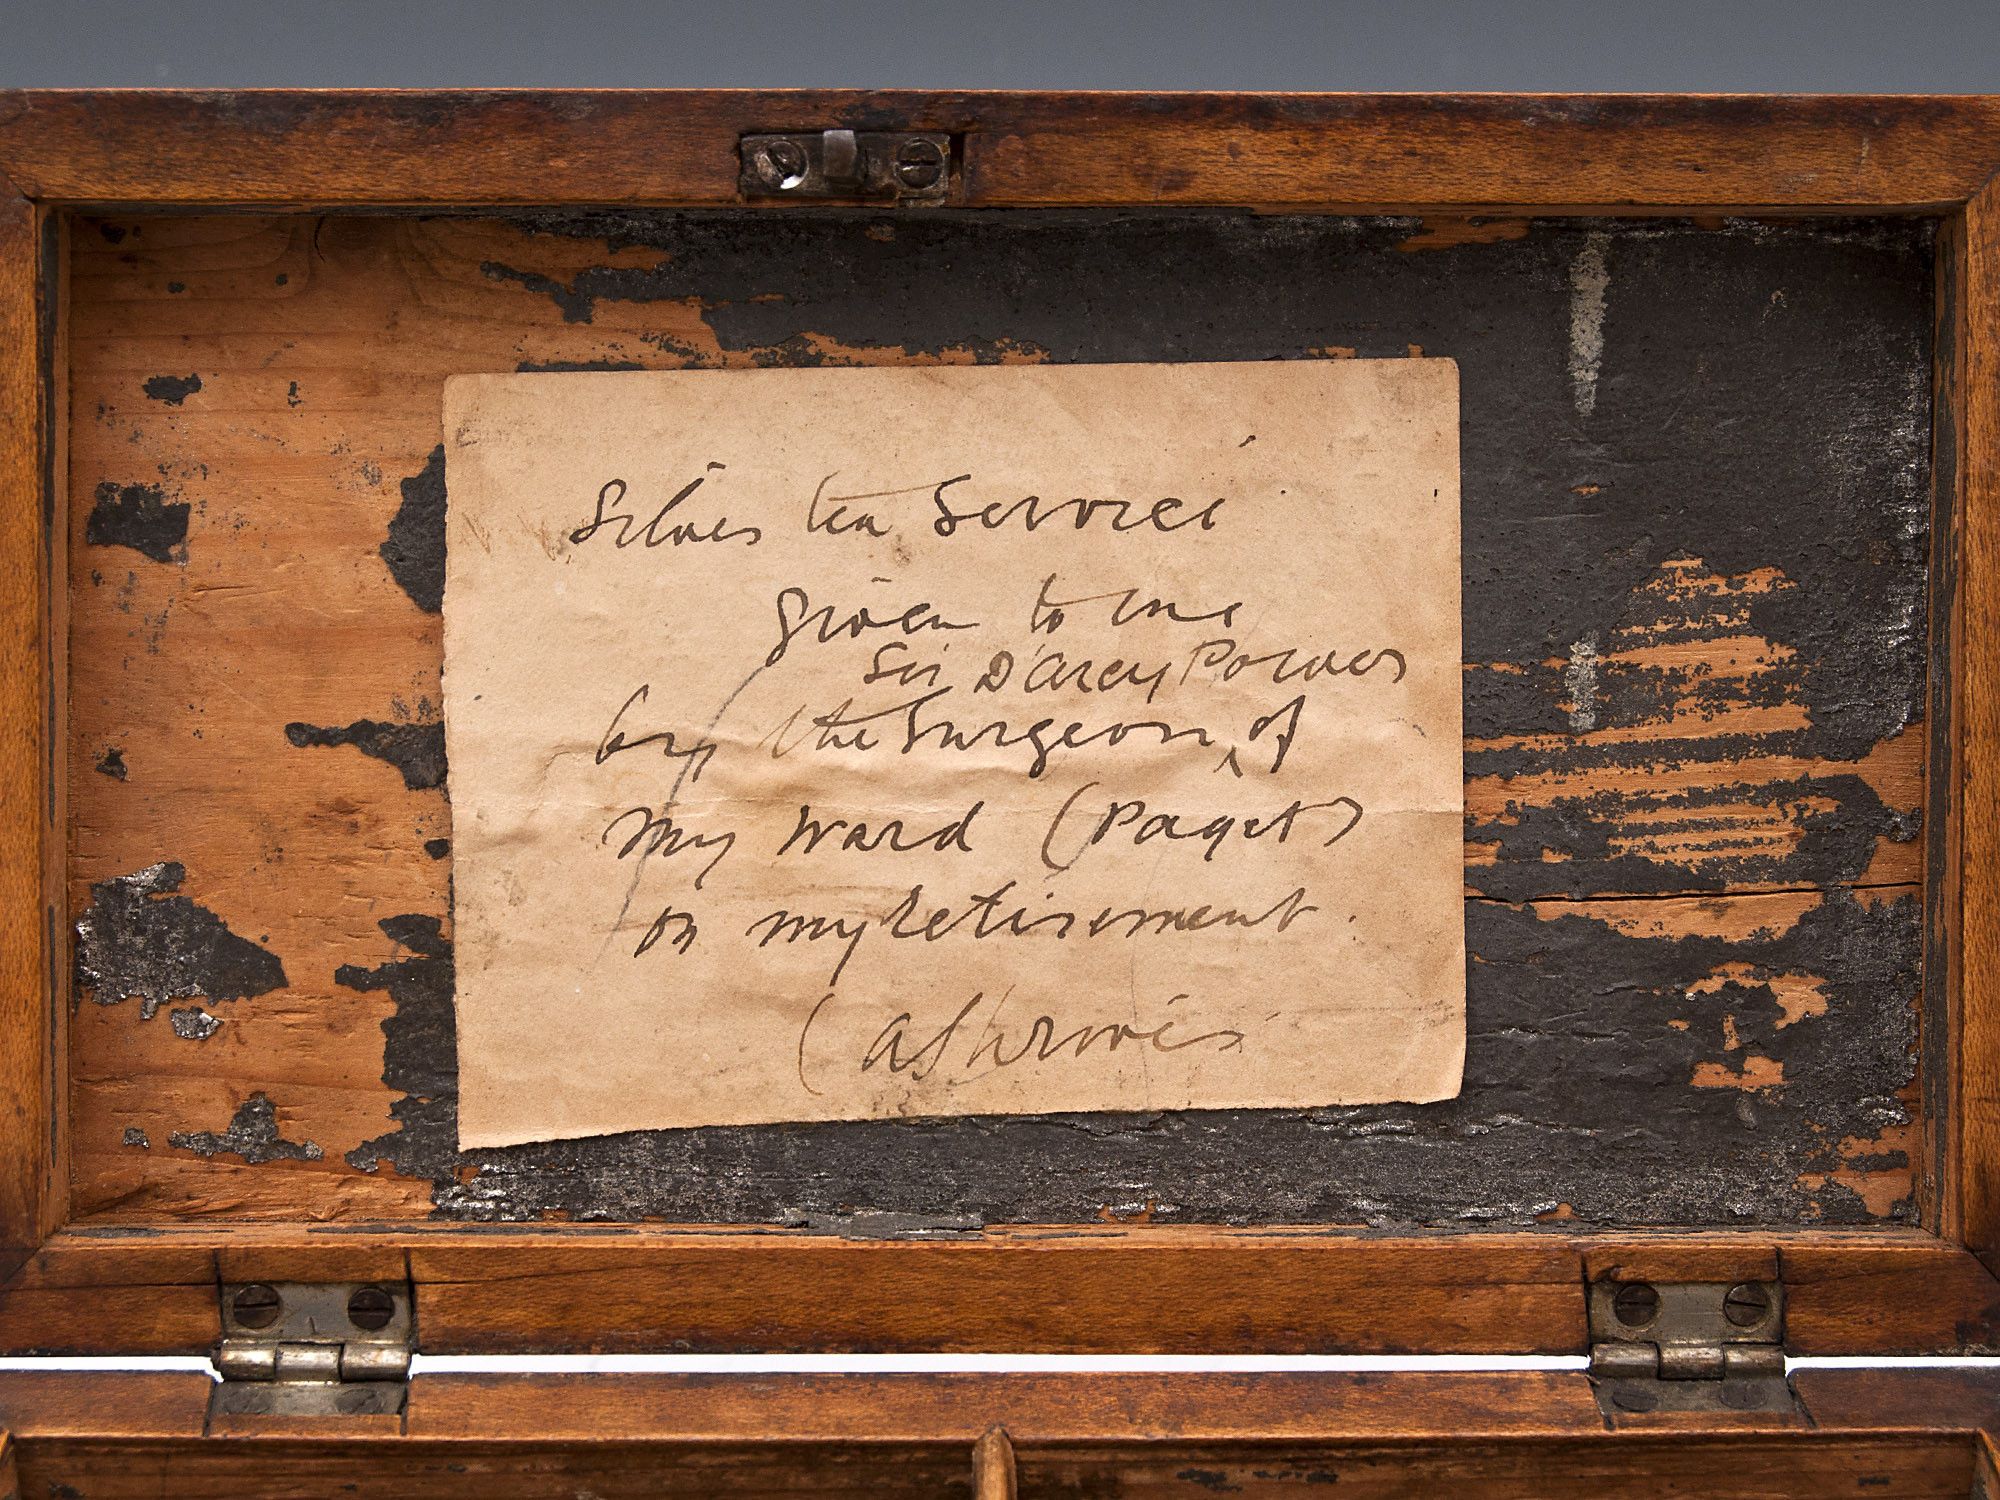 Silver tea Service
given to me
Sir D'Arcy Power
by the Surgeon, of
my ward (Paget)
on my retirement.
(